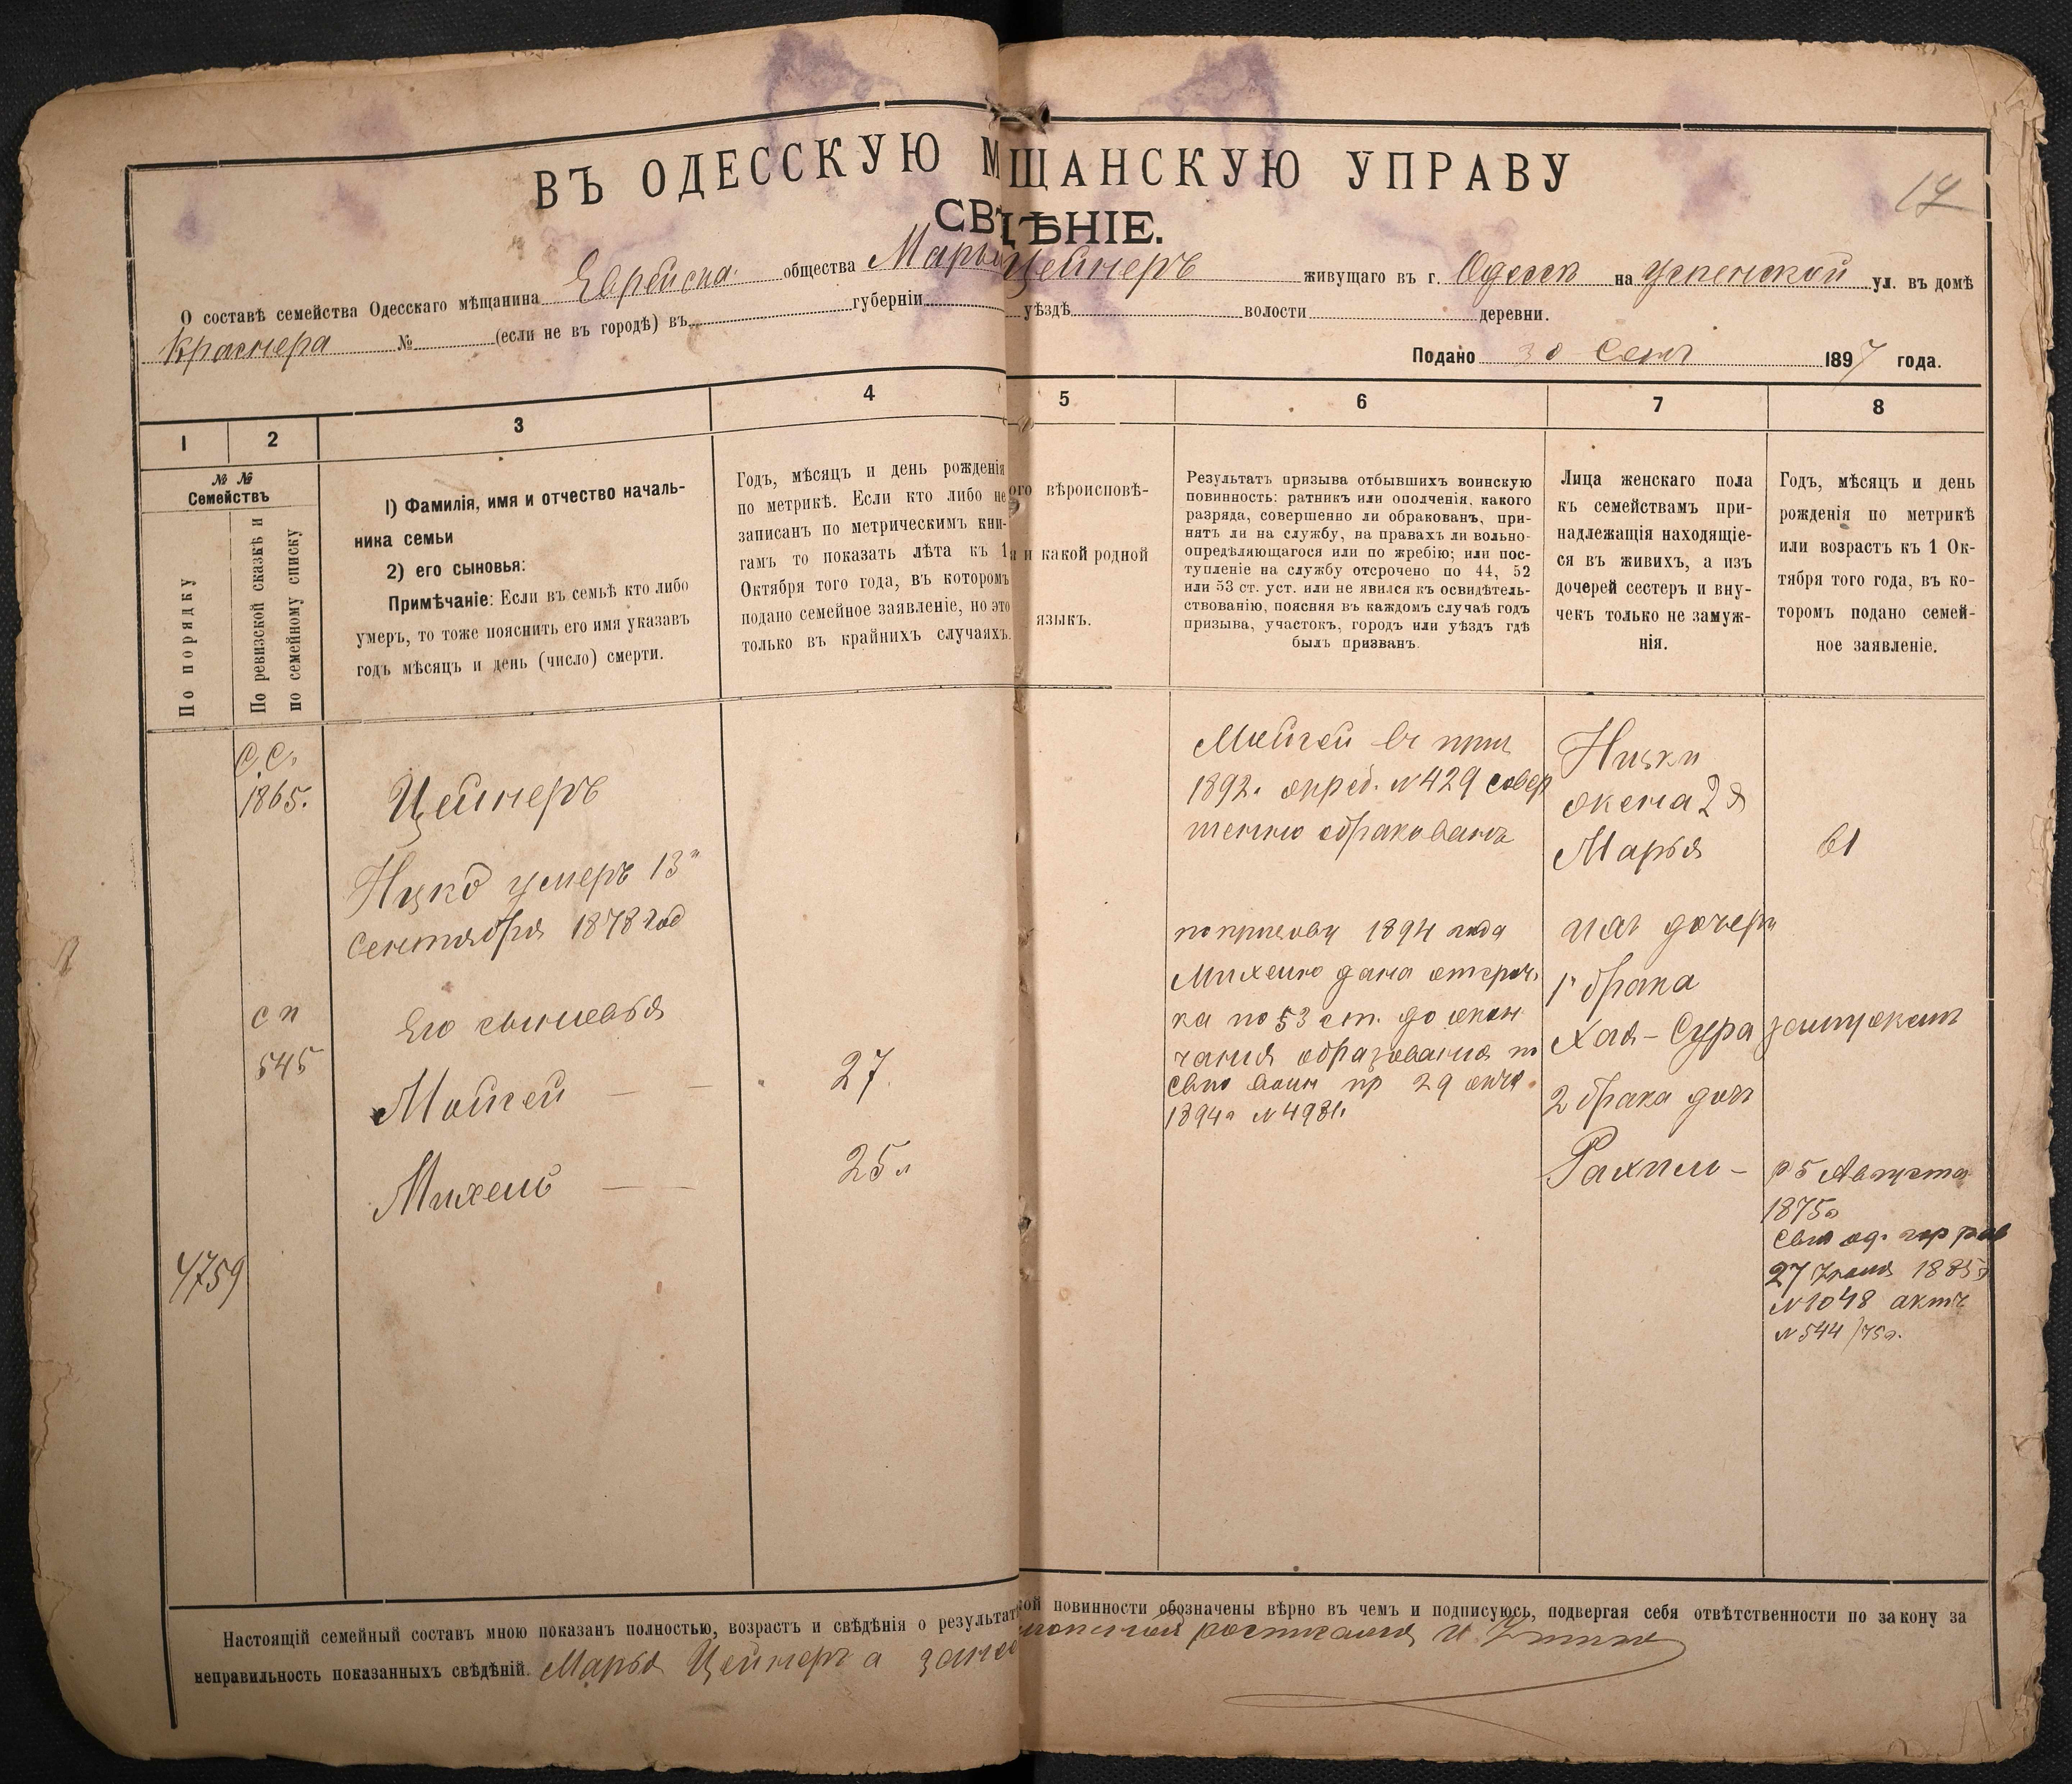 ВЪ ОДЕССКУЮ МЩАНСКУЮ УПРАВУ
17
СВѢДѢНІЕ.
О составѣ семейства Одесскаго мѣщанина Еврейска общества Марья Цейнеръ живущаго въ г. Одессѣ на Успенской ул. въ домѣ
Краснера № (если не въ городѣ) въ губерніи уѣздѣ волости деревни.
Подано 30 Сент 1897 года.
1 2 3 4 5 6 7 8
№ №
Семействъ
По порядку
По ревизской сказкѣ и
по семейному списку
1) Фамилія, имя и отчество началь-
ника семьи
2) его сыновья:
Примѣчаніе: Если въ семьѣ кто либо
умеръ, то тоже пояснить его имя указавъ
годъ мѣсяцъ и день (число) смерти.
Годъ, мѣсяцъ и день рожденія
по метрикѣ. Если кто либо не
записанъ по метрическимъ кни-
гамъ то показать лѣта къ 1
Октября того года, въ которомъ
подано семейное заявленіе, но это
только въ крайнихъ случаяхъ.
ого вѣроисповѣ-
я и какой родной
языкъ.
Результатъ призыва отбывшихъ воинскую
повинность: ратникъ или ополченія, какого
разряда, совершенно ли обракованъ, при-
нятъ ли на службу, на правахъ ли вольно-
опредѣляющагося или по жребію; или пос-
тупленіе на службу отсрочено по 44, 52
или 53 ст. уст. или не явился къ освидѣтель-
ствованію, поясняя въ каждомъ случаѣ годъ
призыва, участокъ, городъ или уѣздъ гдѣ
былъ призванъ.
Лица женскаго пола
къ семействамъ при-
надлежащія находящіе-
ся въ живихъ, а изъ
дочерей сестеръ и вну-
чекъ только не замуж-
нія.
Годъ, мѣсяцъ и день
рожденія по метрикѣ
или возрастъ къ 1 Ок-
тября того года, въ ко-
торомъ подано семей-
ное заявленіе.
С.С.
1865.
с п
545
4759
Цейнеръ
Ицко умеръ 13
Сентября 1878 год
Его сыновья
Мойсей — — 27
Михель — — 25 л
Мойсей въ
1892. №429 совер
шенно обракованъ
по призову 1894 года
Михелю дана отсроч
ка по 53 ст. до окон
чания образования по
29
1894г №4981.
Ицки
жена 2я
Марья 61
ихъ дочери
1 брака
Хая-Сура замужемъ
2 брака дочь
Рахиль — 5 Августа
1875г
од. гор рав
27 1885г
№1048 актъ
№544/75г.
Настоящій семейный составъ мною показанъ полностью, возрастъ и свѣдѣнія о результат кой повинности обозначены вѣрно въ чемъ и подписуюсь, подвергая себя отвѣтственности по закону за
неправильность показанныхъ свѣдѣній. Марья Цейнеръ а за нее